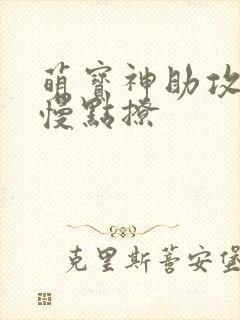 萌寶神助攻
慢點撩
克里斯蒂安堡